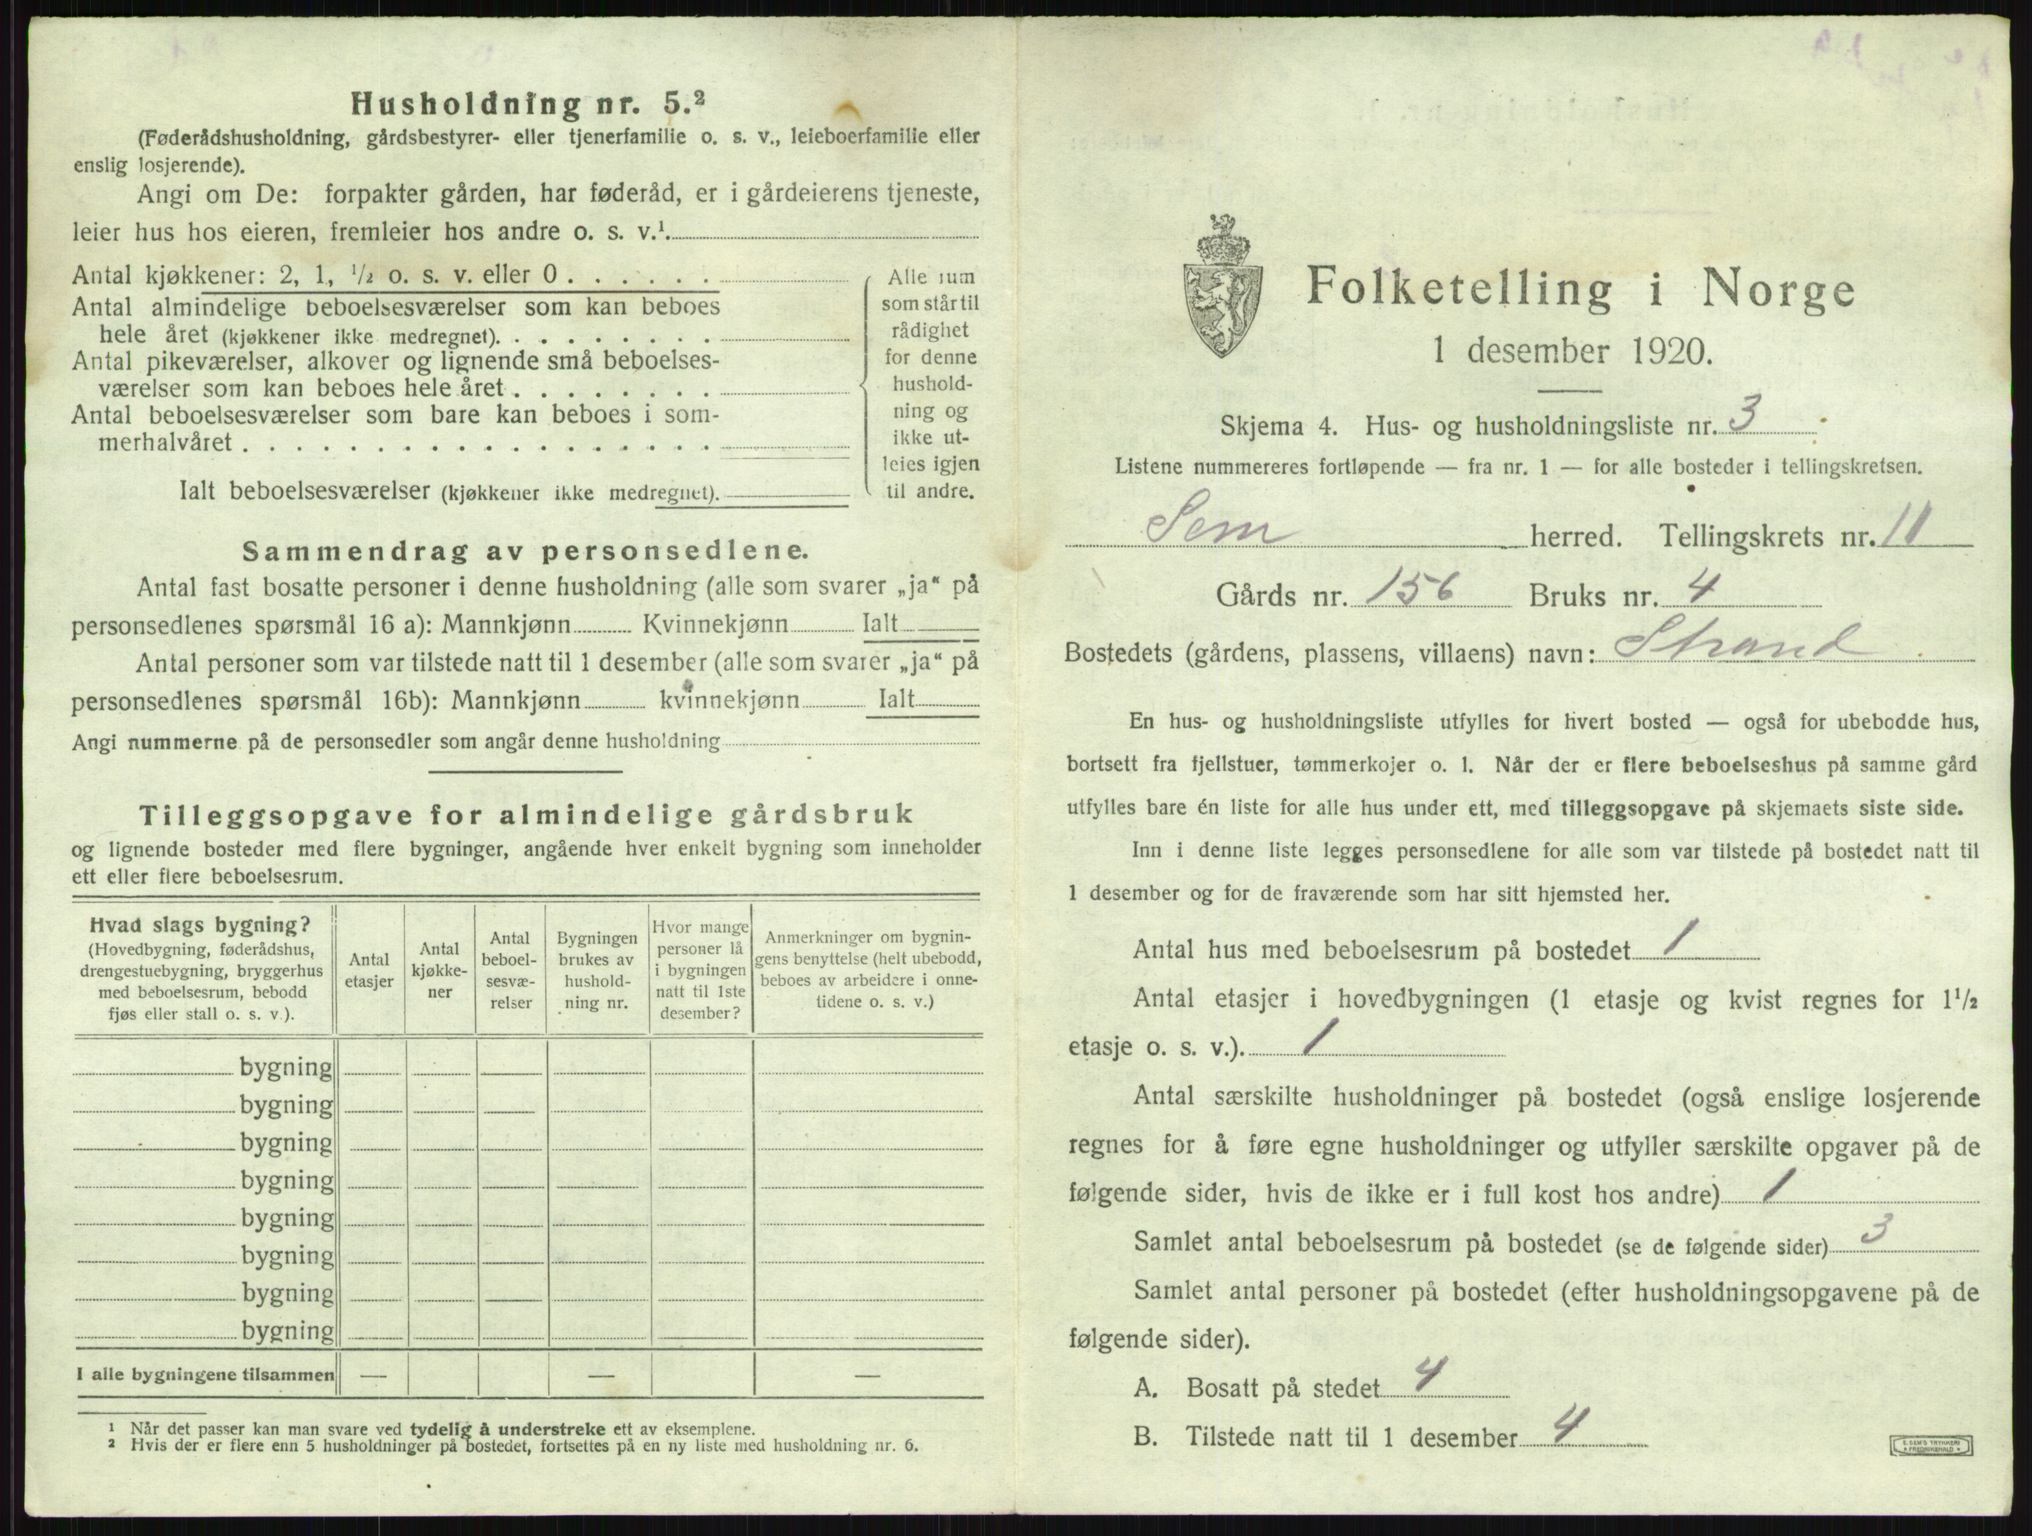 Husholdning nr. 5.²
(Føderådshusholdning, gårdsbestyrer- eller tjenerfamilie o. s. v., leieboerfamilie eller
enslig losjerende).
Angi om De: forpakter gården, har føderåd, er i gårdeierens tjeneste,
leier hus hos eieren, fremleier hos andre o. s. v.¹.
Antal kjøkkener: 2, 1, ½ o. s. v. eller 0 . . . . . .
Antal almindelige beboelsesværelser som kan beboes
hele året (kjøkkener ikke medregnet). . . . . . . . .
Antal pikeværelser, alkover og lignende små beboelses-
værelser som kan beboes hele året . . . . . . . .
Antal beboelsesværelser som bare kan beboes i som-
merhalvåret . . . . . . . . . . . . . . . . . .
Ialt beboelsesværelser (kjøkkener ikke medregnet).
Alle rum
som står til
rådighet
for denne
hushold-
ning og
ikke ut-
leies igjen
til andre.
Sammendrag av personsedlene.
Antal fast bosatte personer i denne husholdning (alle som svarer „ja“ på
personsedlenes spørsmål 16 a): Mannkjønn Kvinnekjønn Ialt
Antal personer som var tilstede natt til 1 desember (alle som svarer „ja“ på
personsedlenes spørsmål 16b): Mannkjønn kvinnekjønn Ialt
Angi nummerne på de personsedler som angår denne husholdning
Tilleggsopgave for almindelige gårdsbruk
og lignende bosteder med flere bygninger, angående hver enkelt bygning som inneholder
ett eller flere beboelsesrum.
Hvad slags bygning?
(Hovedbygning, føderådshus,
drengestuebygning, bryggerhus
med beboelsesrum, bebodd
fjøs eller stall o. s. v.).
Antal
etasjer
Antal
kjøkke-
ner
Antal
beboel-
sesvæ-
relser
Bygningen
brukes av
hushold-
ning nr.
Hvor mange
personer lå
i bygningen
natt til 1ste
desember?
Anmerkninger om bygnin-
gens benyttelse (helt ubebodd,
beboes av arbeidere i onne-
tidene o. s. v.)
bygning
bygning
bygning
bygning
bygning
bygning
bygning
bygning
I alle bygningene tilsammen — — —
¹ Når det passer kan man svare ved tydelig å understreke ett av eksemplene.
² Hvis der er flere enn 5 husholdninger på bostedet, fortsettes på en ny liste med husholdning nr. 6.
Folketelling i Norge
1 desember 1920.
Skjema 4. Hus- og husholdningsliste nr. 3
Listene nummereres fortløpende — fra nr. 1 — for alle bosteder i tellingskretsen.
Sem herred. Tellingskrets nr. 11
Gårds nr. 156 Bruks nr. 4
Bostedets (gårdens, plassens, villaens) navn: Strand
En hus- og husholdningsliste utfylles for hvert bosted — også for ubebodde hus,
bortsett fra fjellstuer, tømmerkojer o. l. Når der er flere beboelseshus på samme gård
utfylles bare én liste for alle hus under ett, med tilleggsopgave på skjemaets siste side.
Inn i denne liste legges personsedlene for alle som var tilstede på bostedet natt til
1 desember og for de fraværende som har sitt hjemsted her.
Antal hus med beboelsesrum på bostedet 1
Antal etasjer i hovedbygningen (1 etasje og kvist regnes for 1½
etasje o. s. v.). 1
Antal særskilte husholdninger på bostedet (også enslige losjerende
regnes for å føre egne husholdninger og utfyller særskilte opgaver på de
følgende sider, hvis de ikke er i full kost hos andre) 1
Samlet antal beboelsesrum på bostedet (se de følgende sider) 3
Samlet antal personer på bostedet (efter husholdningsopgavene på de
følgende sider).
A. Bosatt på stedet 4
B. Tilstede natt til 1 desember 4